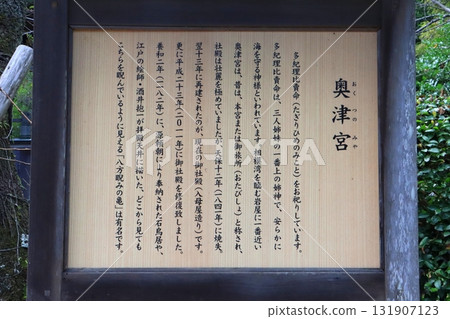 奥津宮
おくつのみや
多紀理比賣命（たぎりひめのみこと）をお祀りしています。
多紀理比賣命は、三人姉妹の一番上の姉神で、安らかに
海を守る神様といわれています。相模湾を臨む岩屋に一番近い
奥津宮は、昔は、本宮または御旅所（おたびしょ）と称され、
社殿は壮麗を極めていましたが、天保十二年（一八四一年）に焼失。
翌十三年に再建されたのが、現在の御社殿（入母屋造り）です。
更に平成二十三年（二〇一一年）に御社殿を修復致しました。
養和二年（一一八二年）に、源頼朝により奉納された石鳥居や、
江戸の絵師・酒井抱一が拝殿天井に描いた、どこから見ても
こちらを睨んでいるように見える「八方睨みの亀」は有名です。
131907123